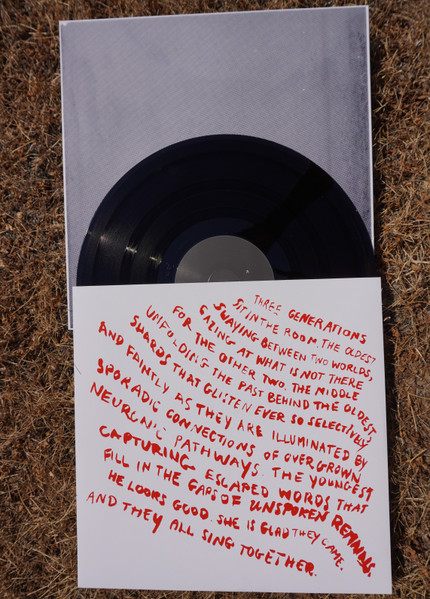 THREE GENERATIONS
SIT IN THE ROOM. THE OLDEST
SWAYING BETWEEN TWO WORLDS,
GAZING AT WHAT IS NOT THERE
FOR THE OTHER TWO. THE MIDDLE
UNFOLDING THE PAST BEHIND THE OLDEST
SHARDS THAT GLISTEN EVER SO SELECTIVELY
AND FAINTLY AS THEY ARE ILLUMINATED BY
SPORADIC CONNECTIONS OF OVERGROWN
NEURONIC PATHWAYS. THE YOUNGEST
CAPTURING ESCAPED WORDS THAT
FILL IN THE GAPS OF UNSPOKEN REMINDS.
HE LOOKS GOOD. SHE IS GLAD THEY CAME.
AND THEY ALL SING TOGETHER.